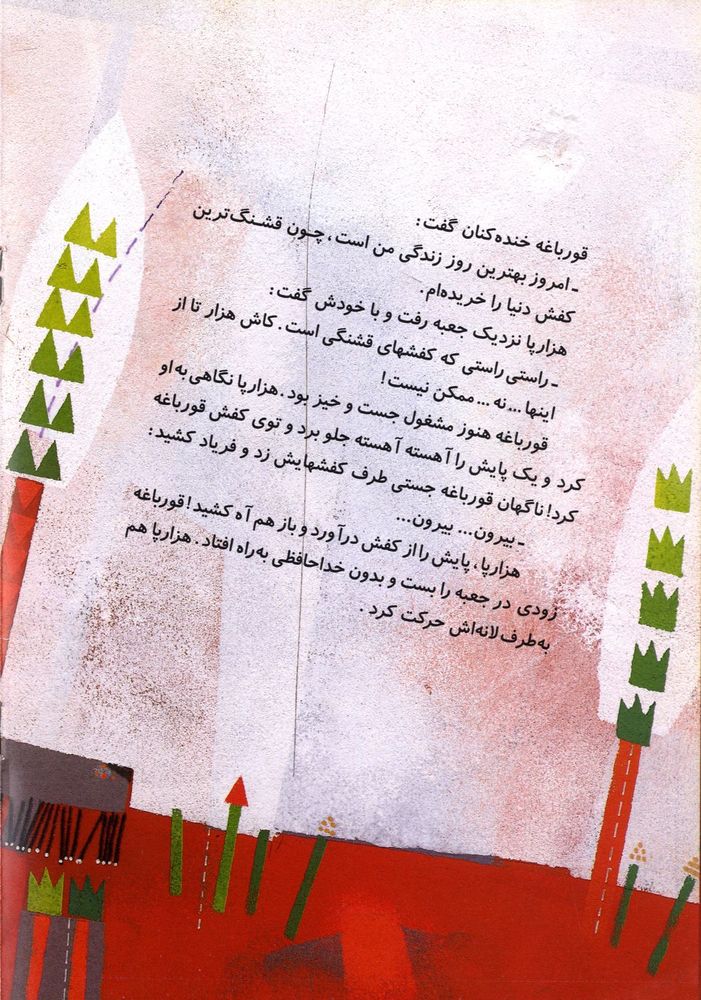 قورباغه خنده‌کنان گفت:
ـ امروز بهترین روز زندگی من است، چون قشنگ‌ترین
کفش دنیا را خریده‌ام.
هزارپا نزدیک جعبه رفت و با خودش گفت:
ـ راستی راستی که کفشهای قشنگی است. کاش هزار تا از
اینها... نه... ممکن نیست!
قورباغه هنوز مشغول جست و خیز بود. هزارپا نگاهی به او
کرد و یک پایش را آهسته آهسته جلو برد و توی کفش قورباغه
کرد! ناگهان قورباغه جستی طرف کفشهایش زد و فریاد کشید:
ـ بیرون... بیرون...
هزارپا، پایش را از کفش درآورد و باز هم آه کشید! قورباغه
زودی در جعبه را بست و بدون خداحافظی به‌راه افتاد. هزارپا هم
به‌طرف لانه‌اش حرکت کرد.